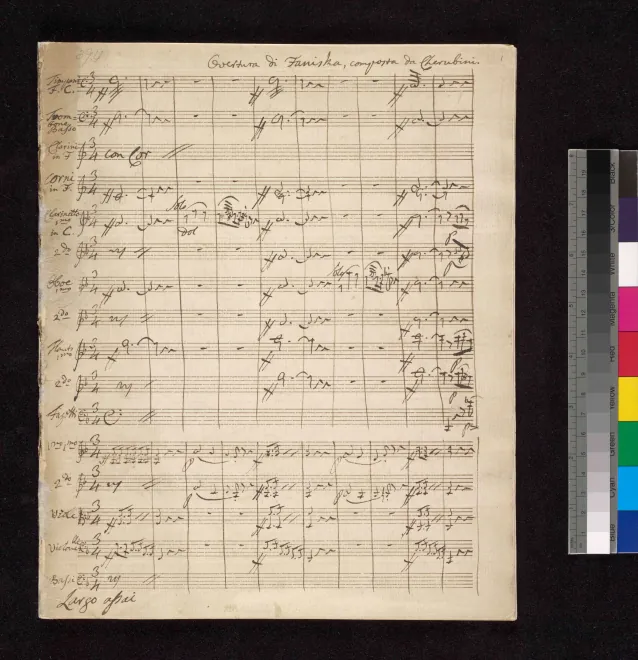 Overtura di Faniska, composta da Cherubini.
Timpani
F. C.
Trom-
bone
Basso
Clarini
in F.
con Cor
Corni
in F.
Clarinetto
1mo
in C.
Solo
dol
2do
Oboe
1mo
Solo
2do
Flauto
1mo
2do
Fagotti
Vno 1mo
2do
Viole
Violoncello
Bassi
Largo assai
Black
3/Color
White
Magenta
Red
Yellow
Green
Cyan
Blue